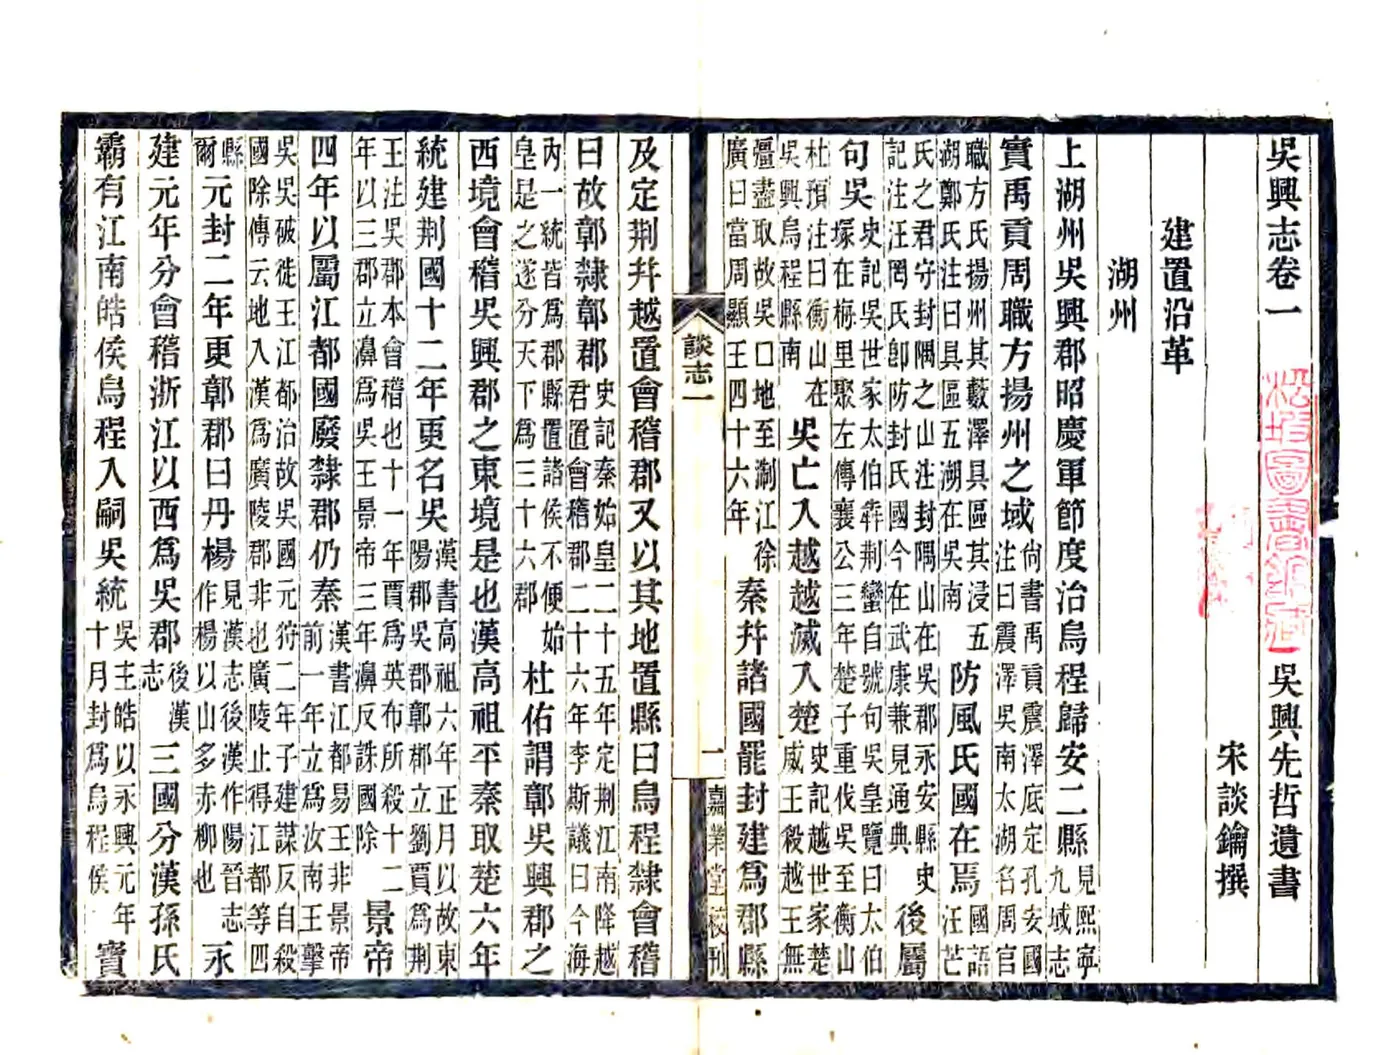 吳興志卷一 松坡圖書館藏 吳興先哲遺書
宋談鑰撰
建置沿革
湖州
上湖州吳興郡昭慶軍節度治烏程歸安二縣見熙寧九域志
實禹貢周職方揚州之域尚書禹貢震澤底定孔安國注曰震澤吳南太湖名周官
職方氏揚州其藪澤具區其浸五湖鄭氏注曰具區五湖在吳南防風氏國在焉國語汪芒
氏之君守封隅之山注封隅山在吳郡永安縣史記注汪罔氏卽防封氏國今在武康兼見通典後屬
句吳史記吳世家太伯犇荆蠻自號句吳皇覽曰太伯冢在梅里聚左傳襄公三年楚子重伐吳至衡山
杜預注曰衡山在吳興烏程縣南吳亡入越越滅入楚史記越世家楚威王殺越王無
彊盡取故吳口地至浙江徐廣曰當周顯王四十六年秦幷諸國罷封建爲郡縣
談志一 一 嘉業堂校刊
及定荆幷越置會稽郡又以其地置縣曰烏程隸會稽
曰故鄣隸鄣郡史記秦始皇二十五年定荆江南降越君置會稽郡二十六年李斯議曰今海
内一統皆爲郡縣置諸侯不便始皇是之遂分天下爲三十六郡杜佑謂鄣吳興郡之
西境會稽吳興郡之東境是也漢高祖平秦取楚六年
統建荆國十二年更名吳漢書高祖六年正月以故東陽郡吳郡鄣郡立劉賈爲荆
王注吳郡本會稽也十一年賈爲英布所殺十二年以三郡立濞爲吳王景帝三年濞反誅國除景帝
四年以屬江都國廢隸郡仍秦漢書江都易王非景帝前一年立爲汝南王擊
吳吳破徙王江都治故吳國元狩二年子建謀反自殺國除傳云地入漢爲廣陵郡非也廣陵止得江都等四
縣爾元封二年更鄣郡曰丹楊見漢志後漢作陽晉志作楊以山多赤柳也永
建元年分會稽浙江以西爲吳郡後漢志三國分漢孫氏
霸有江南皓侯烏程入嗣吳統吳主皓以永興元年十月封爲烏程侯寶